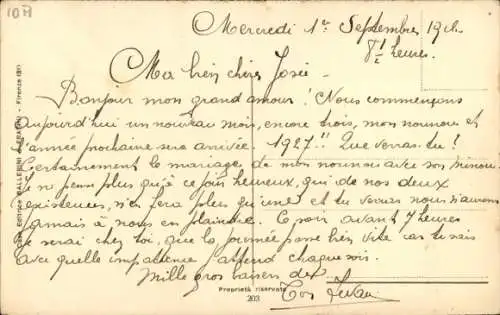 10 A
Mercredi 1er Septembre 1926.
8h 1/2 heures.
Ma bien chère José -
Bonjour mon grand amour! Nous commençons
aujourd'hui un nouveau mois, encore trois, mon nounou et
l'année prochaine sera arrivée. 1927!! Que verras-tu?
Certainement le mariage de mon nounou avec son
je ne pense plus qu'à ce jour heureux, qui de nos deux
existences, n'en fera plus qu'une et tu verras nous n'aurons
jamais à nous en plaindre. Ce soir avant 7 heures
je serai chez toi, que la journée passe bien vite car tu sais
avec quelle impatience j'attend chaque soir.
Mille gros baisers de
Ton
Proprietà riservata
203
Editrice BALLERINI & FRATINI - Firenze